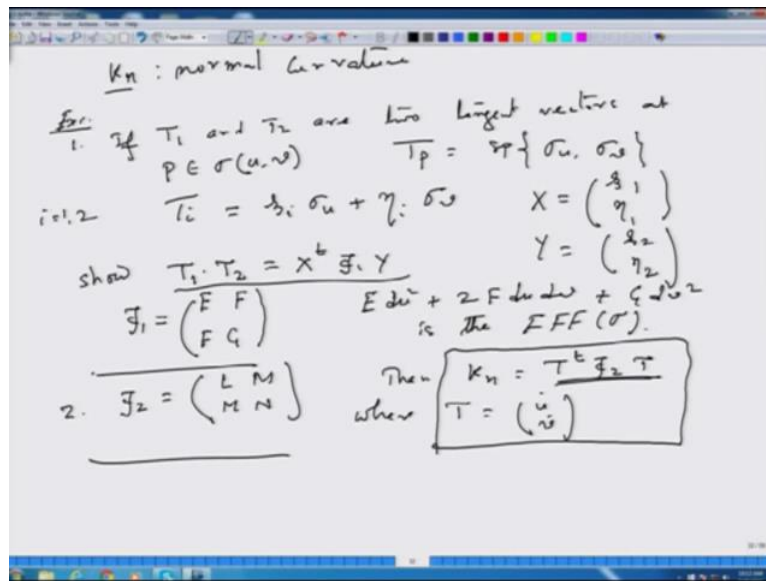 Kn : normal curvature
Exr.
1. If T1 and T2 are two tangent vectors at
P ∈ σ(u,v) Tp = sp{σu, σv}
i=1,2 Ti = ξi σu + ηi σv X = (ξ1 η1)
Y = (ξ2 η2)
show T1·T2 = X^t F1 Y
F1 = (E F F G) E du² + 2F du dv + G dv²
is the EFF(σ).
2. F2 = (L M M N) Then Kn = T^t F2 T
where T = (u̇ v̇)